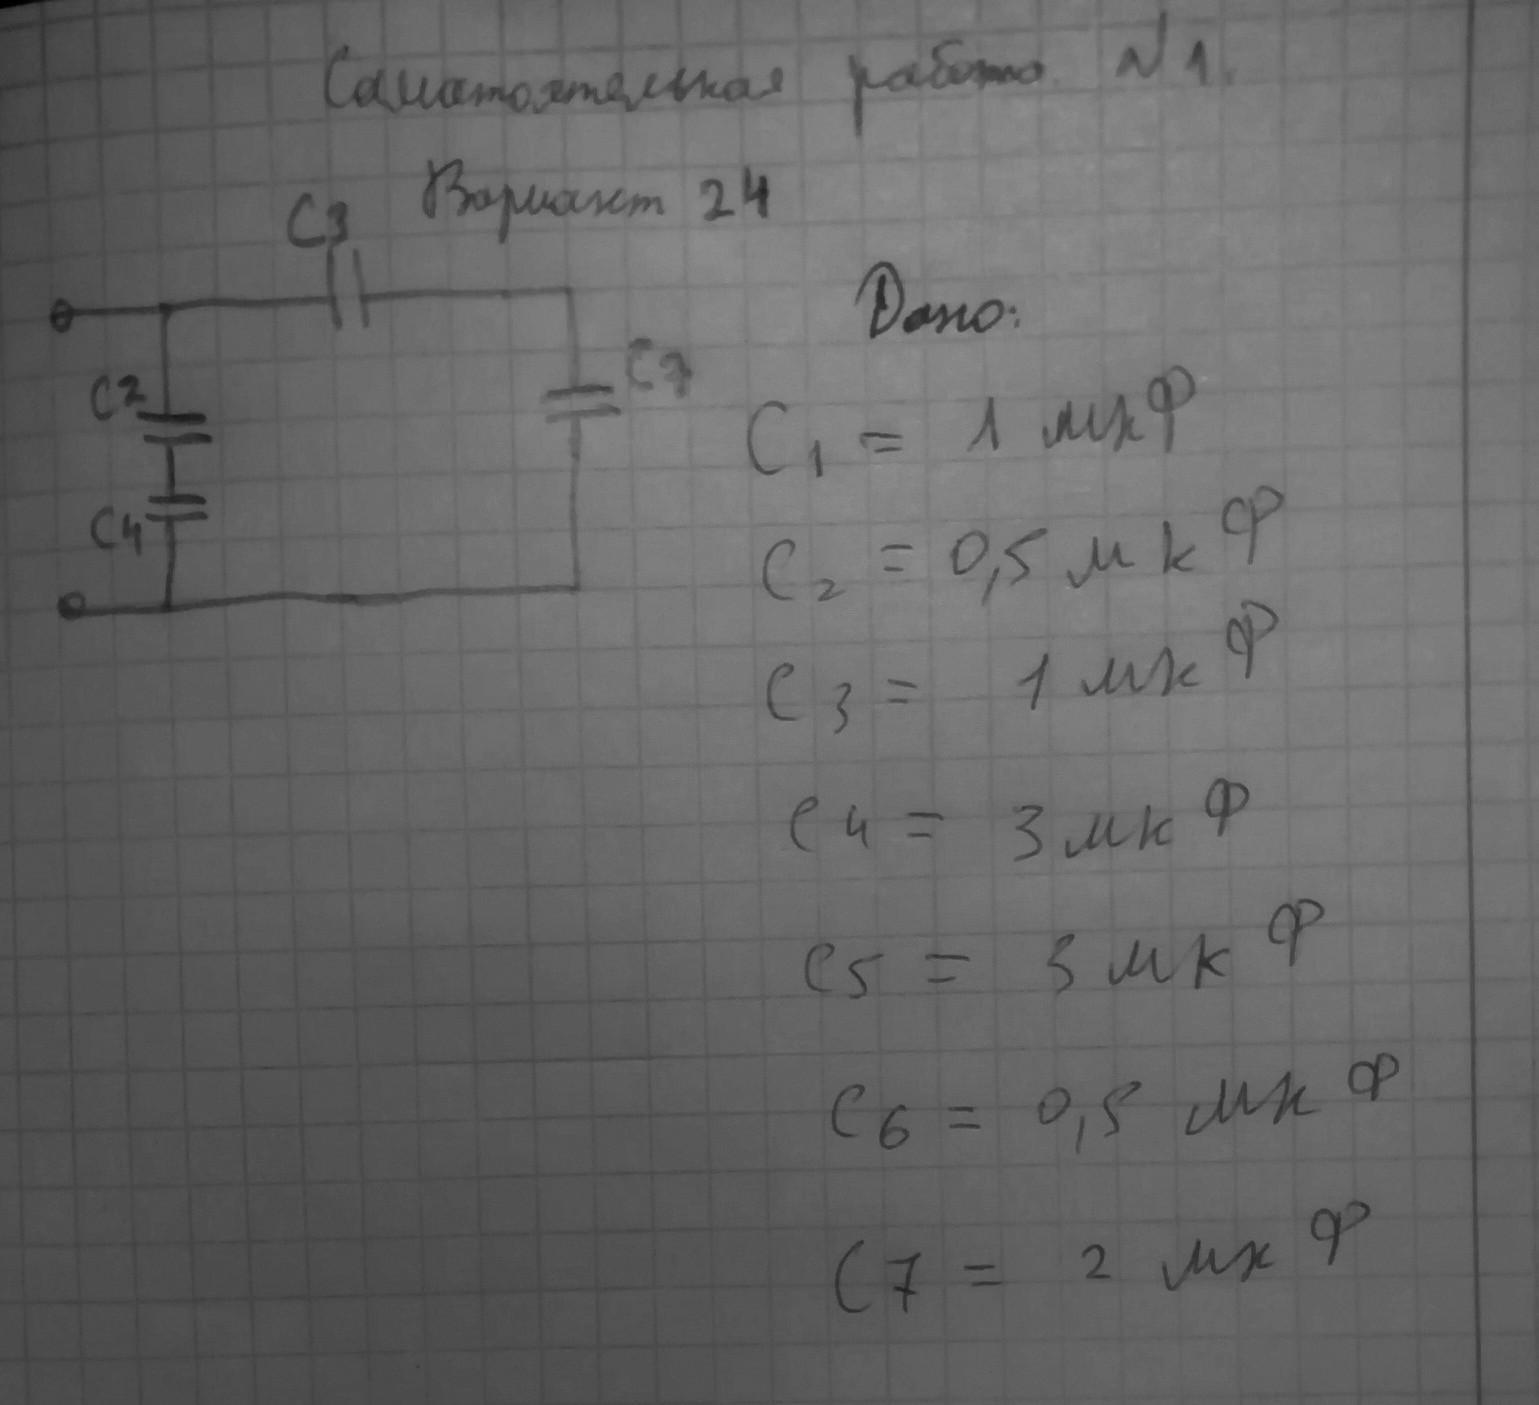 Самостоятельная работа №1.
Вариант 24
C3
C7
C2
C4
Дано:
C1 = 1 мкФ
C2 = 0,5 мкФ
C3 = 1 мкФ
C4 = 3 мкФ
C5 = 3 мкФ
C6 = 0,5 мкФ
C7 = 2 мкФ